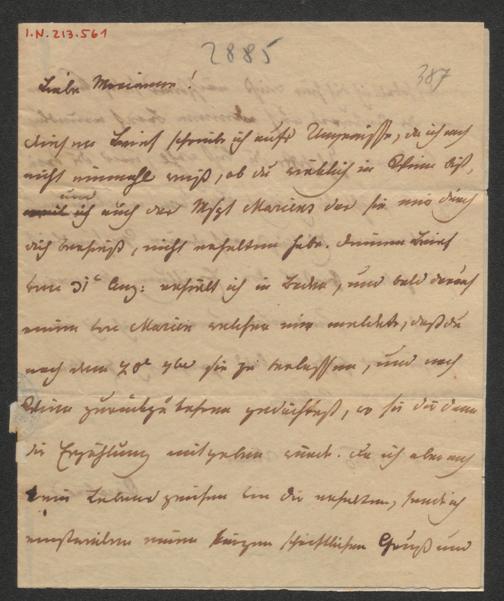 I.N. 213.561
2885
387
Liebe Marianne!
diesen Brief schreibe ich aufs Ungewisse, da ich noch
nicht einmahl weiß, ob du wirklich in Wien bist,
und
ich auch das Mspt Mariens das sie mir durch
dich verhieß, nicht erhalten habe. Deinen Brief
vom 31t Aug: erhielt ich in Baden, und bald darauf
einen von Marien welcher mir meldete, daß du
nach dem 20t 7ber sie zu verlassen, und nach
Wien zurückzukehren gedächtest, wo sie dir dann
die Erzählung mitgeben würde. Da ich aber noch
kein Lebenszeichen von dir erhalten, sende ich
einstweilen meinen kurzen schriftlichen Gruß und